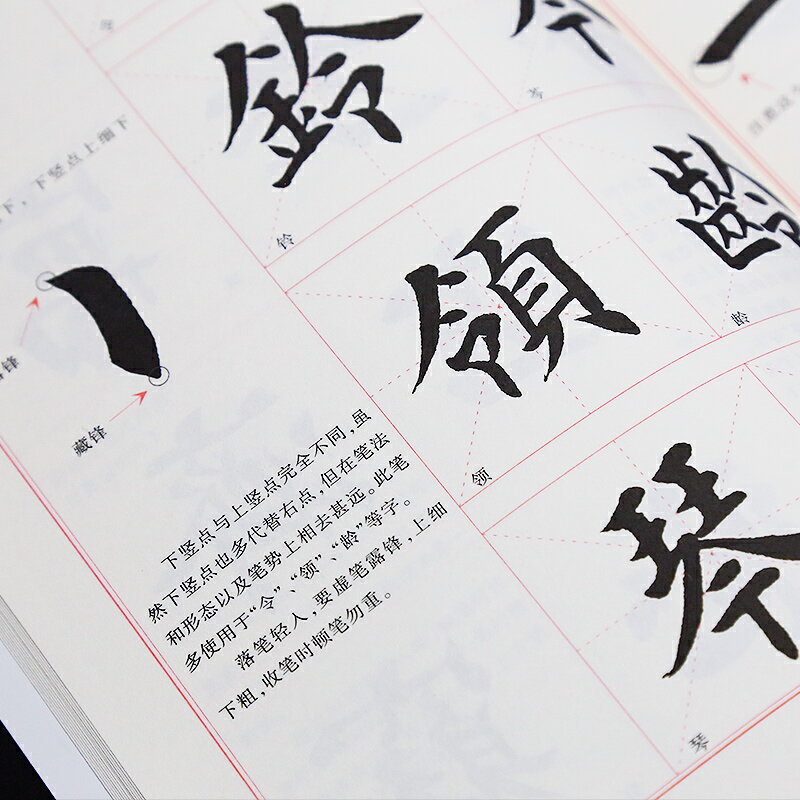 鈴
铃
芩
領
领
齡
龄
琴
琴
下，下竖点上细下
藏锋
下竖点与上竖点完全不同，虽
然下竖点也多代替右点，但在笔法
和形态以及笔势上相去甚远。此笔
多使用于“令”、“领”、“龄”等字。
落笔轻入，要虚笔露锋，上细
下粗，收笔时顿笔勿重。